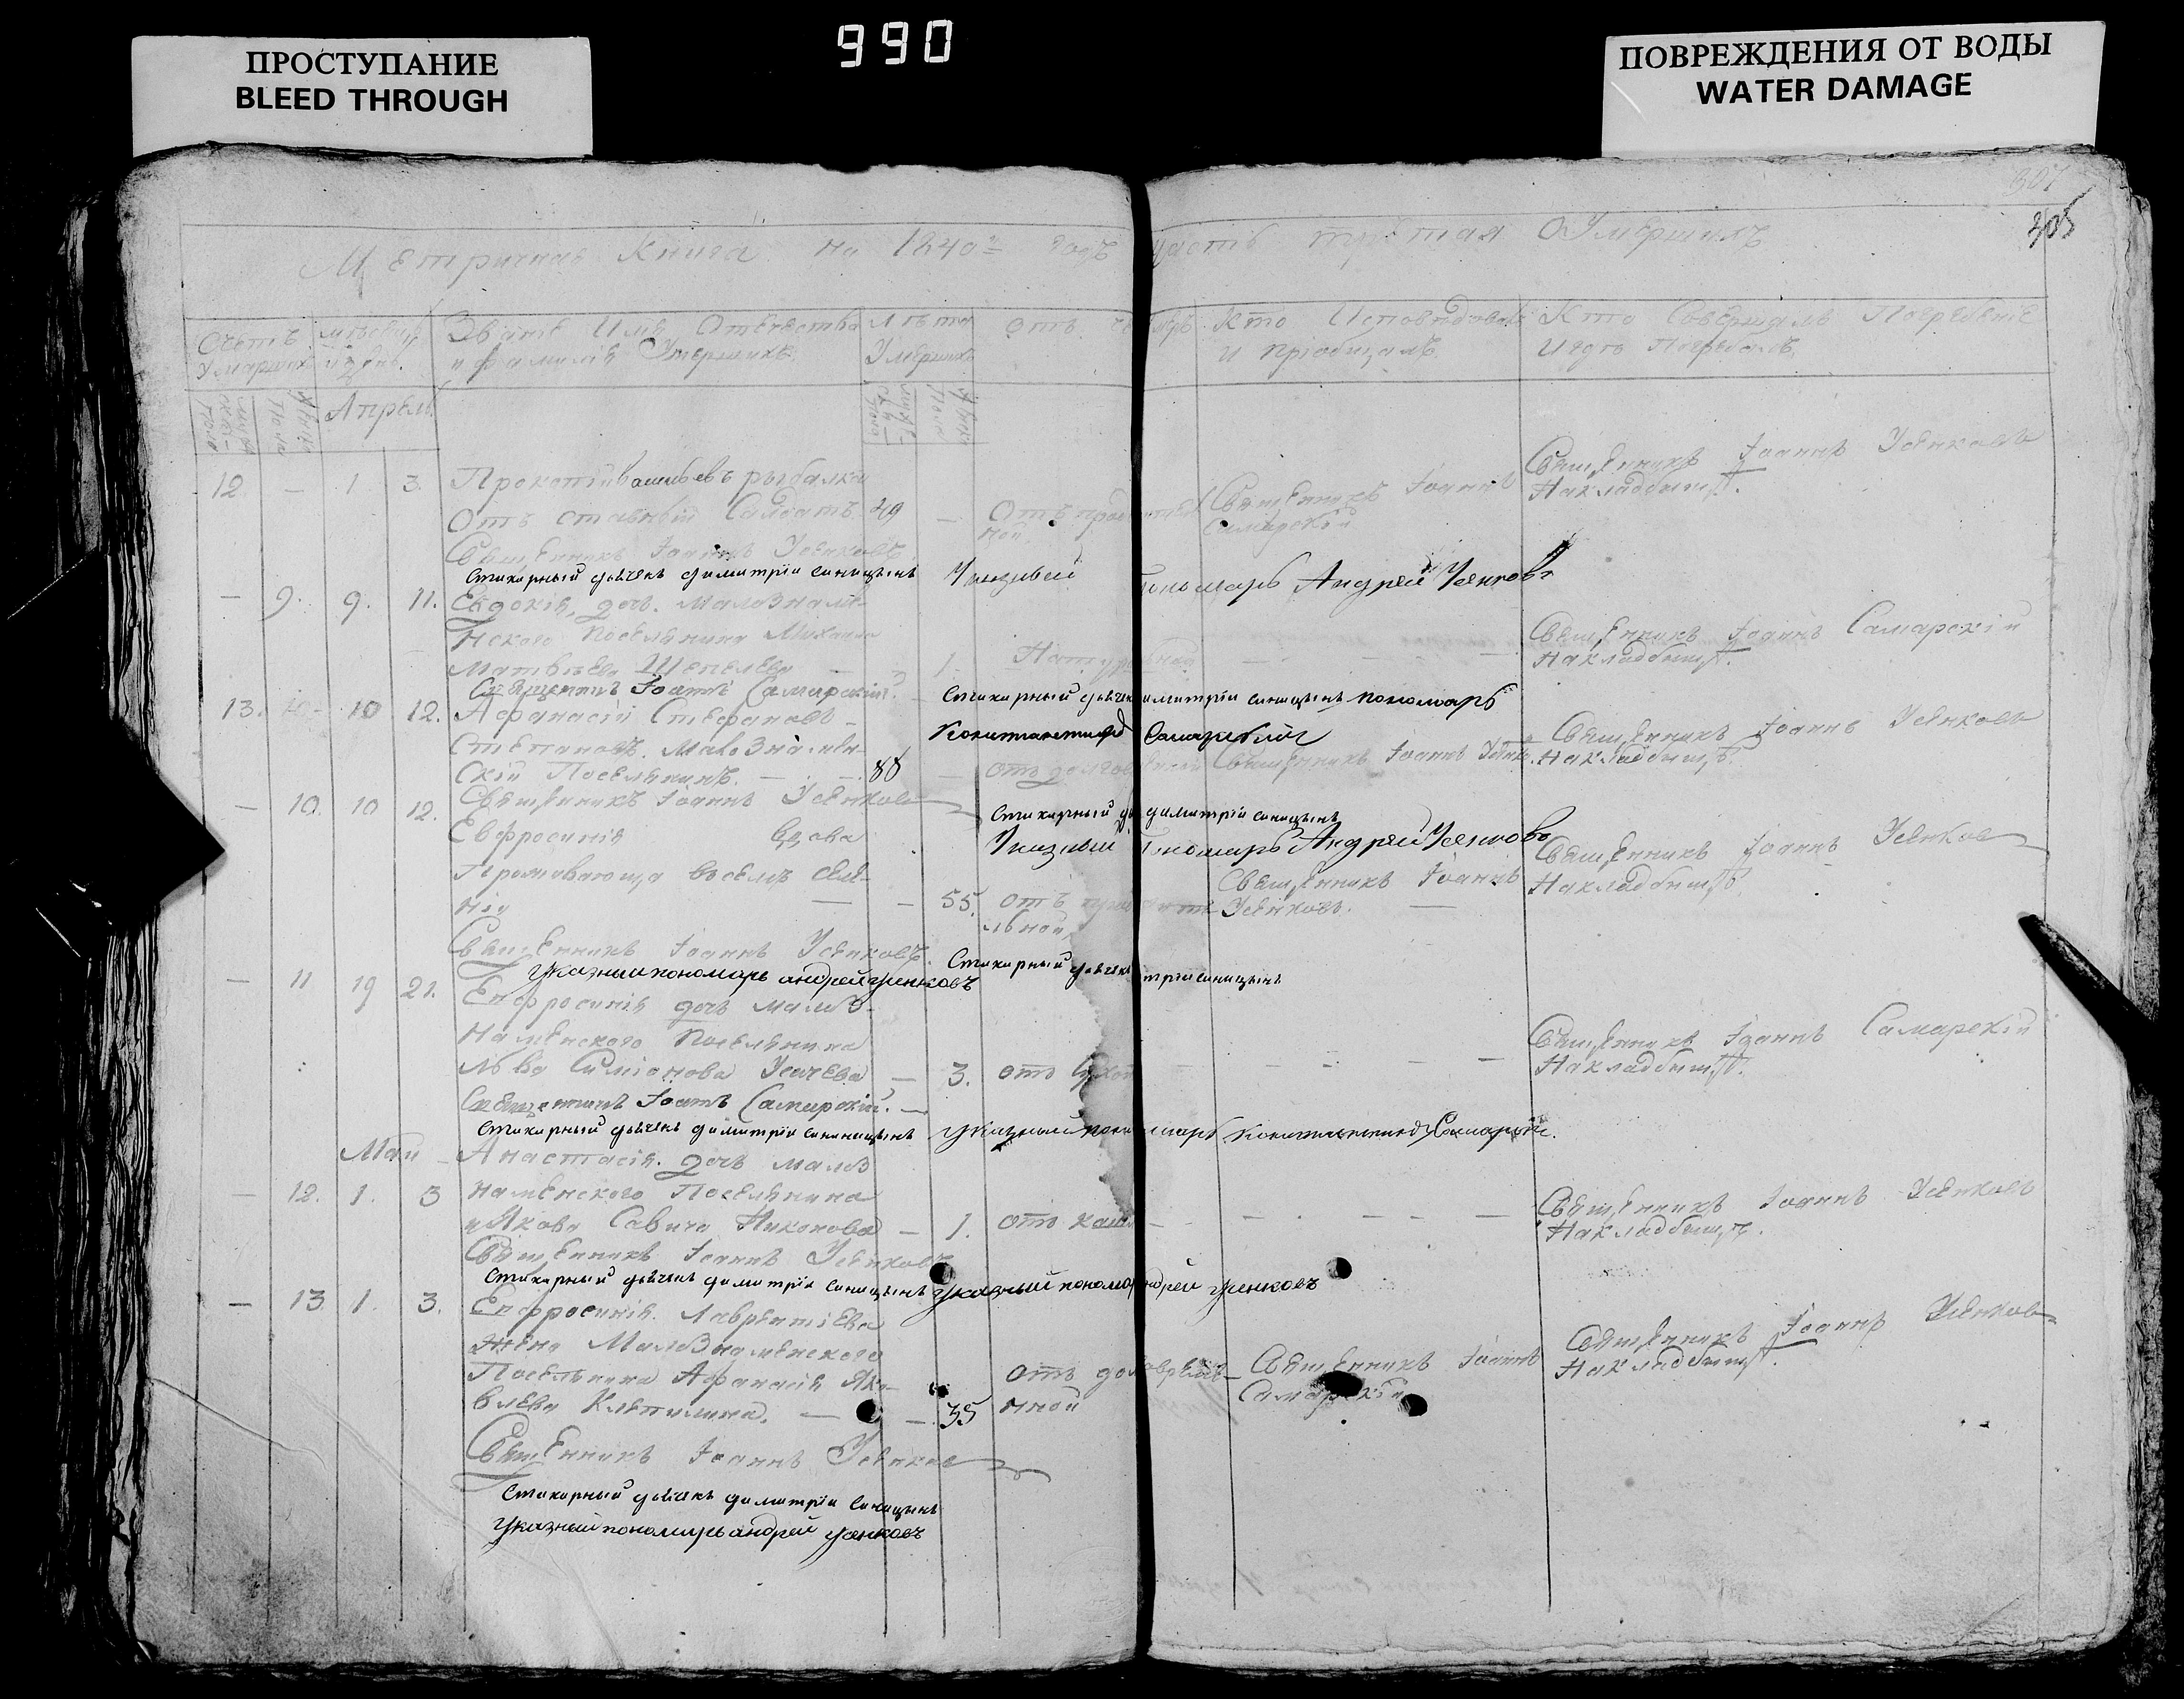 ПРОСТУПАНИЕ
BLEED THROUGH
990
ПОВРЕЖДЕНИЯ ОТ ВОДЫ
WATER DAMAGE
307
305
Метричная Книга на 1840й годъ часть третая О Умершихъ
Счетъ Умершихъ
Званіе Имя Отечество и фамилія Умершихъ
Лѣта Умершихъ
Отъ чего
Кто Исповѣдовалъ и пріобщалъ
Кто Совершалъ Погребеніе И гдѣ Погребалъ
Апрель
12 — 1. 3. Прокопій рыбалка
Отъ ставный Салдатъ 49 —
Священникъ Іоаннъ Самарскій
Священникъ Іоаннъ Усенковъ
На кладбищѣ.
Священникъ Іоаннъ Усенковъ
Стихарный дьячекъ димитрій синицынъ
Указный Пономарь Андрей Усенковъ
— 9. 9. 11. Евдокія, дочь Малознаме-
нского Поселянина Михаила
Матвѣева Шепелева — 1. Натуральной — — —
Священникъ Іоаннъ Самарскій
На кладбищѣ.
Священникъ Іоаннъ Самарскій.
Стихарный дьячекъ димитрій синицынъ пономарь
Константинъ Самарский
13. 10 12. Афанасій Стефановъ
Степановъ. Малознамен-
скій Поселянинъ. — 88 —
Священникъ Іоаннъ Усенк.
Священникъ Іоаннъ Усенковъ
На кладбищѣ.
Священникъ Іоаннъ Усенковъ
Стихарный димитрій синицынъ
Указный Пономарь Андрей Усенковъ
— 10. 10 12. Евфросинія вдова
Проживающа восемъ селе-
нію — — 55. отъ
льной,
Священникъ Іоаннъ
Усенковъ. —
Священникъ Іоаннъ Усенковъ
На кладбищѣ.
Священникъ Іоаннъ Усенковъ.
Указный пономарь андрей усенковъ
Стихарный дьячекъ димитрій синицынъ
— 11 19 21. Епфросинія дочь Малоз-
наменского Поселянина
Льва Симіонова Усичева — 3. отъ — — — —
Священникъ Іоаннъ Самарскій
На кладбищѣ.
Священникъ Іоаннъ Самарскій. —
Стихарный дьячекъ димитрій синицынъ
указный пономарь Константинъ Самарский.
Маи
Анастасія. дочь малоз
— 12. 1. 3 наменского Поселянина
Якова Савича Никонова — 1. отъ — — — — —
Священникъ Іоаннъ Усенковъ
На кладбищѣ.
Священникъ Іоаннъ Усенковъ
Стихарный дьячекъ димитрій синицынъ указный пономарь андрей усенковъ
— 13 1. 3. Епфросинія. Лаврентіева
жена Малознаменского
Поселянина Афанасія Яко-
влева Клепилина. — — 35
отъ долговремѣ-
нной
Священникъ Іоаннъ
Самарскій
Священникъ Іоаннъ Усенковъ
На кладбищѣ.
Священникъ Іоаннъ Усенковъ
Стихарный дьячекъ димитрій синицынъ
Указный пономарь андрей усенковъ